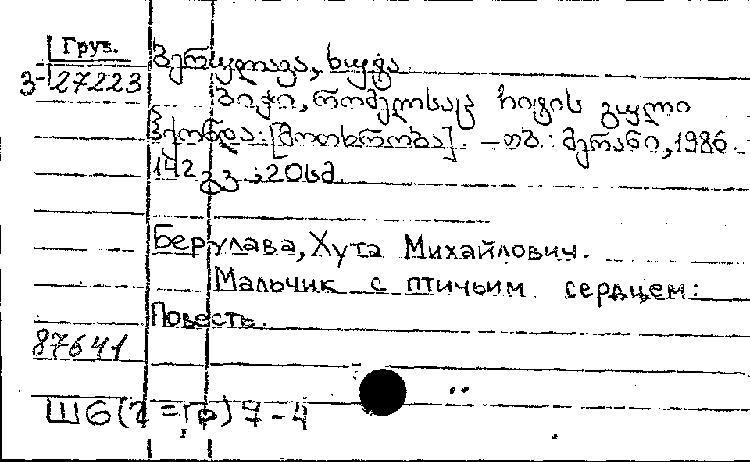 Груз.
3-27223
ბერულავა, ხუტა.
ბიჭი, რომელსაც ჩიტის გული
ჰქონდა: [მოთხრობა]. – თბ.: მერანი, 1986.
142 გვ.; 20სმ.
Берулава, Хута Михайлович.
Мальчик с птичьим сердцем:
Повесть.
87641
Ш6(2=Гр)7-4